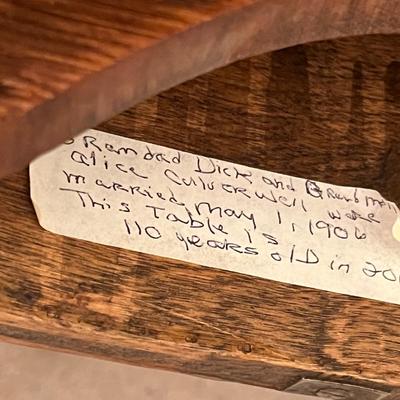 Grandad Dick and Grandma
Alice Culverwell were
married May 1, 1906
This Table is
110 years olD in 20